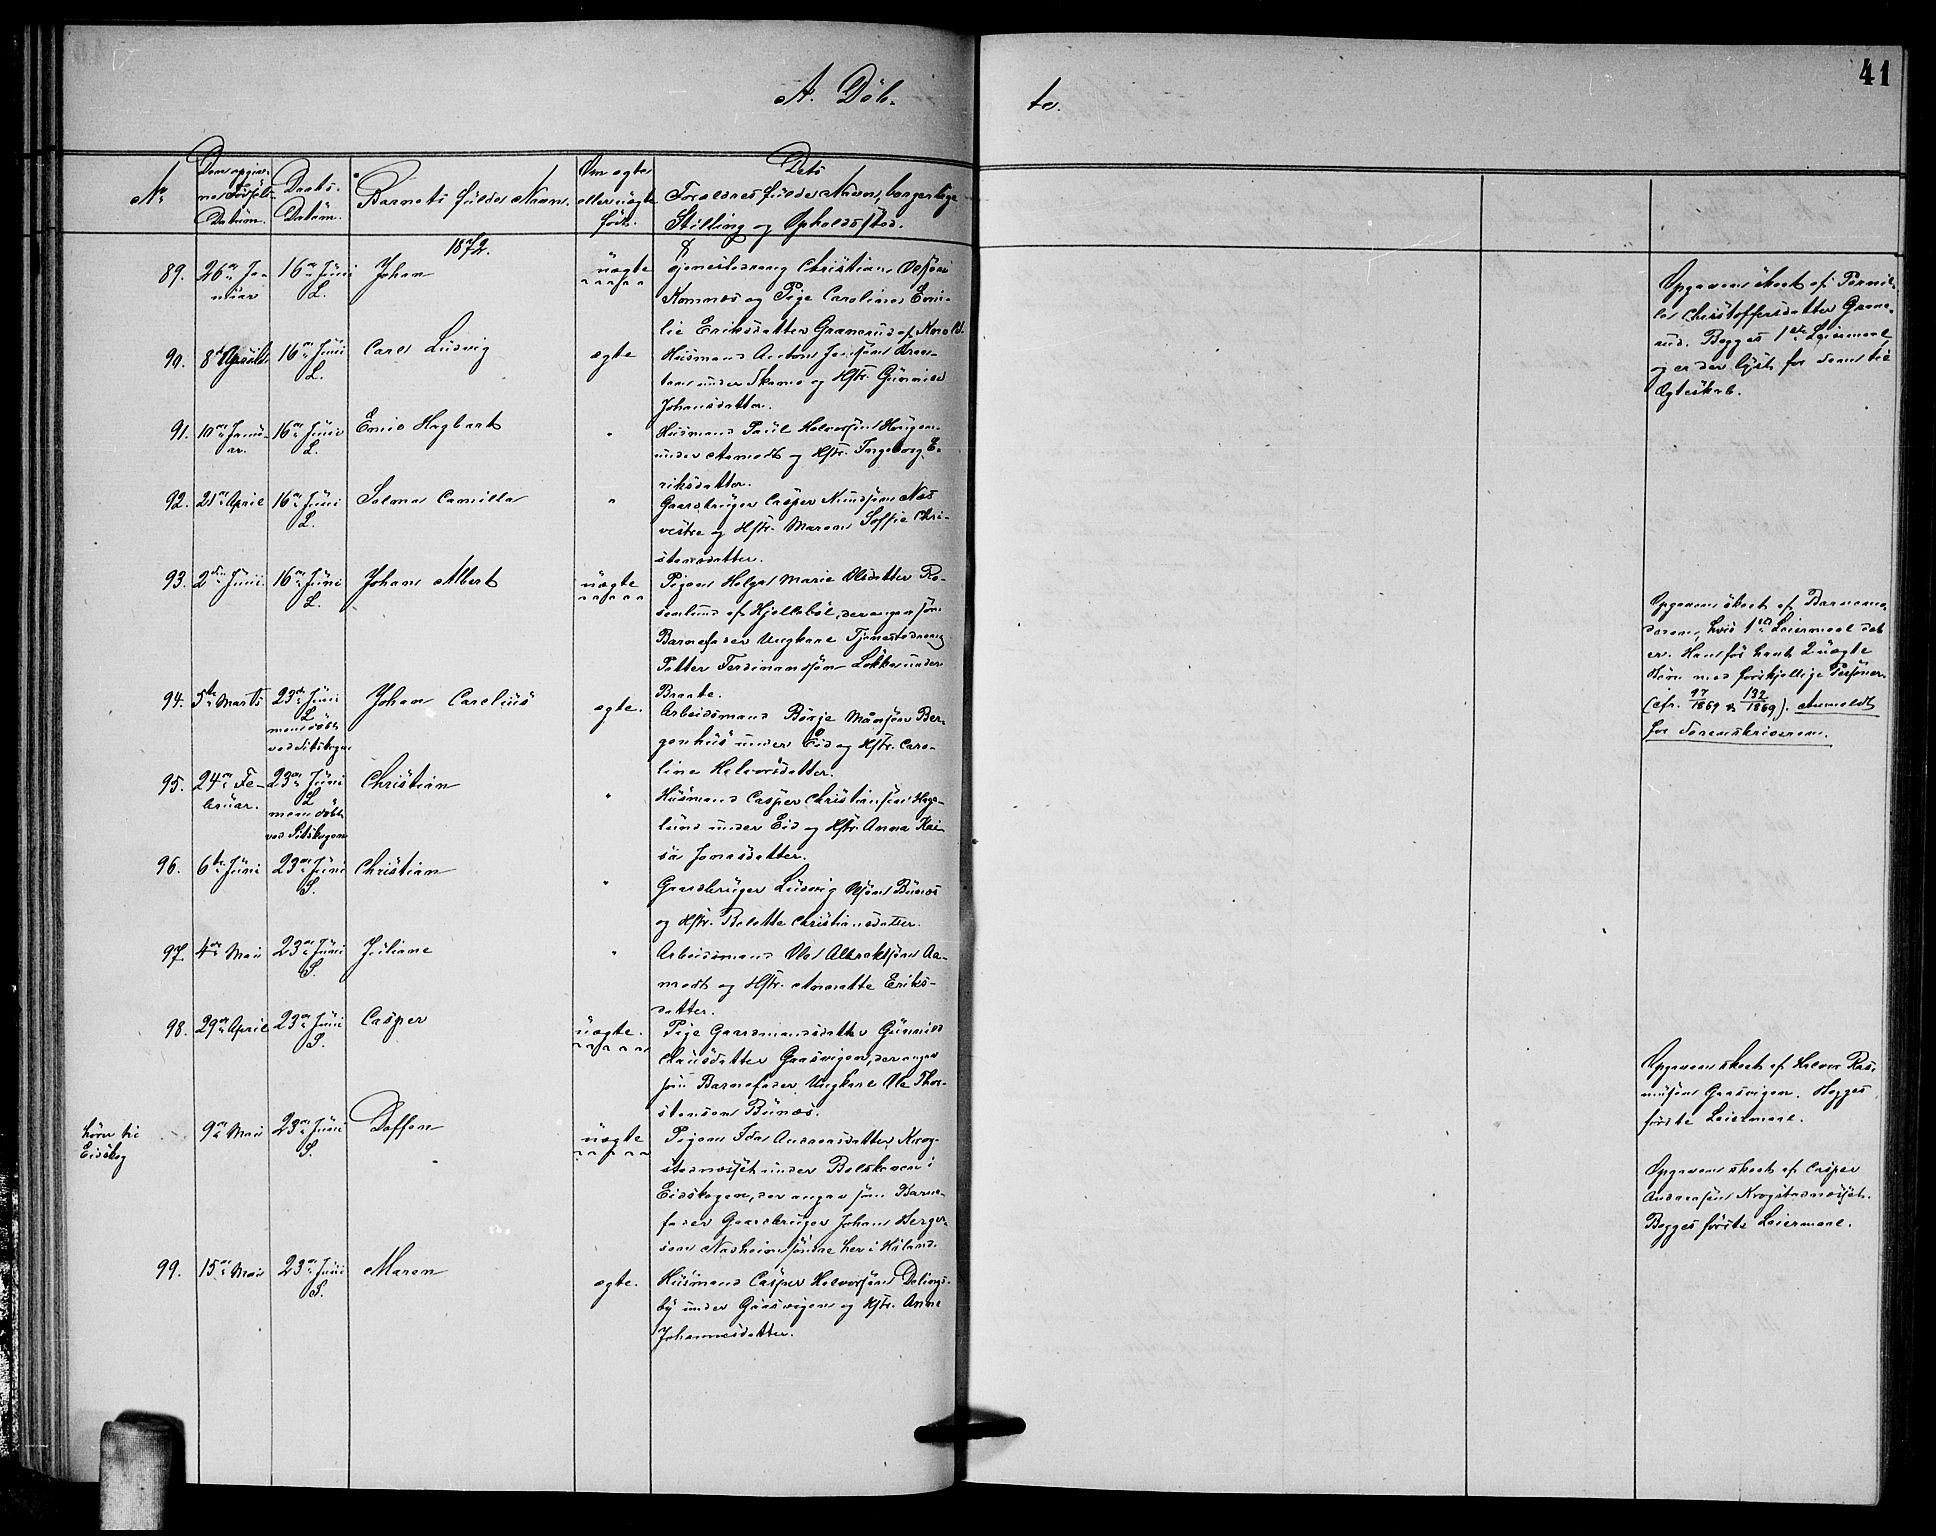 A. Döb-
te.
41
No
Den opgiv-
ne Födsels-
Datum.
Daabs-
Datum.
Barnets fulde Navn.
Om ægte
eller uægte
født.
Dets
Forældres fulde Navn, borgerlige
Stilling og Opholdssted.
1872.
89. 26de Ja-
nuar
16de Juni
L.
Johan
uægte
Tjenestedreng Christian Olsen
Komnæs og Pige Caroline Emi-
lie Eriksdatter Granerud af
Opgaven skeet af Pernil-
le Christoffersdatter Grane-
rud. Begges 1ste Leiermaal,
og er der lyst for dem til
Ægteskab.
90. 8de April
16de Juni
L.
Carl Ludvig
ægte
Husmand Anton Jensen
under Skamo og Hstr. Gunnild
Johansdatter.
91. 10de Janu-
ar.
16de Juni
L.
Emil Hagbart
"
Husmand Paul Halvorsen Haugen
under Aamodt og Hstr. Ingeborg E-
riksdatter.
92. 21de April
16de Juni
L.
Selma Camilla
"
Gaardbruger Casper Knudsen Næs
vestre og Hstr. Maren Soffie Chri-
stensdatter.
93. 2den Juni
16de Juni
L.
Johan Albert
uægte
Pigen Helga Marie Olsdatter Ro-
senlund af Hjellebøl, der angav som
Barnefader Ungkarl Tjenestedreng
Petter Ferdinandsøn Løkken under
Braate.
Opgaven skeet af Barnemo-
deren, hvis 1ste Leiermaal det
er. Han før havt 2 uægte
Børn med forskjellige Personer
(cfr. 97/1869 & 132/1869). Anmeldt
for Sorenskriveren.
94. 5te Marts
23de Juni
L
men døbt
ved Setskogen
Johan Carelius
ægte.
Arbeidsmand Börje Månson Ber-
genhus under Eid og Hstr. Caro-
line Halvorsdatter.
95. 24de Fe-
bruar.
23de Juni
L
men døbt
ved Setskogen
Christian
"
Husmand Casper Christiansen Hag-
lund under Eid og Hstr. Anna Kai-
sa Jonasdatter.
96. 6te Juni
23de Juni
S.
Christian
"
Gaardbruger Ludvig Olsen Bunæs
og Hstr. Bolette Christiansdatter.
97. 4de Mai
23de Juni
S.
Juliane
"
Arbeidsmand Ole Albrektsen Aa-
modt og Hstr. Annette Eriks-
datter.
98. 29de April
23de Juni
S.
Casper
uægte.
Pige Gaardmandsdatter Gunnild
Clausdatter Gaasvigen, der angav
som Barnefader Ungkarl Ole Thor-
stensen Bunæs.
Opgaven skeet af Halvor Ras-
musen Gaasvigen. Begges
første Leiermaal.
hører til
Eidskog
9de Mai
23de Juni
S.
Doffen
uægte
Pigen Ida Andreasdatter Krog-
stadnæsset under Bolskoven i
Eidskogen, der angav som Barne-
fader Gaardbruger Johan Berger-
sen Naxheim søndre her i Høland.
Opgaven skeet af Casper
Andersen Krogstadnæsset.
Begges første Leiermaal.
99. 15de Mai
23de Juni
S.
Maren
ægte.
Husmand Casper Halvorsen Dalings-
by under Gaasvigen og Hstr. Anne
Johannesdatter.